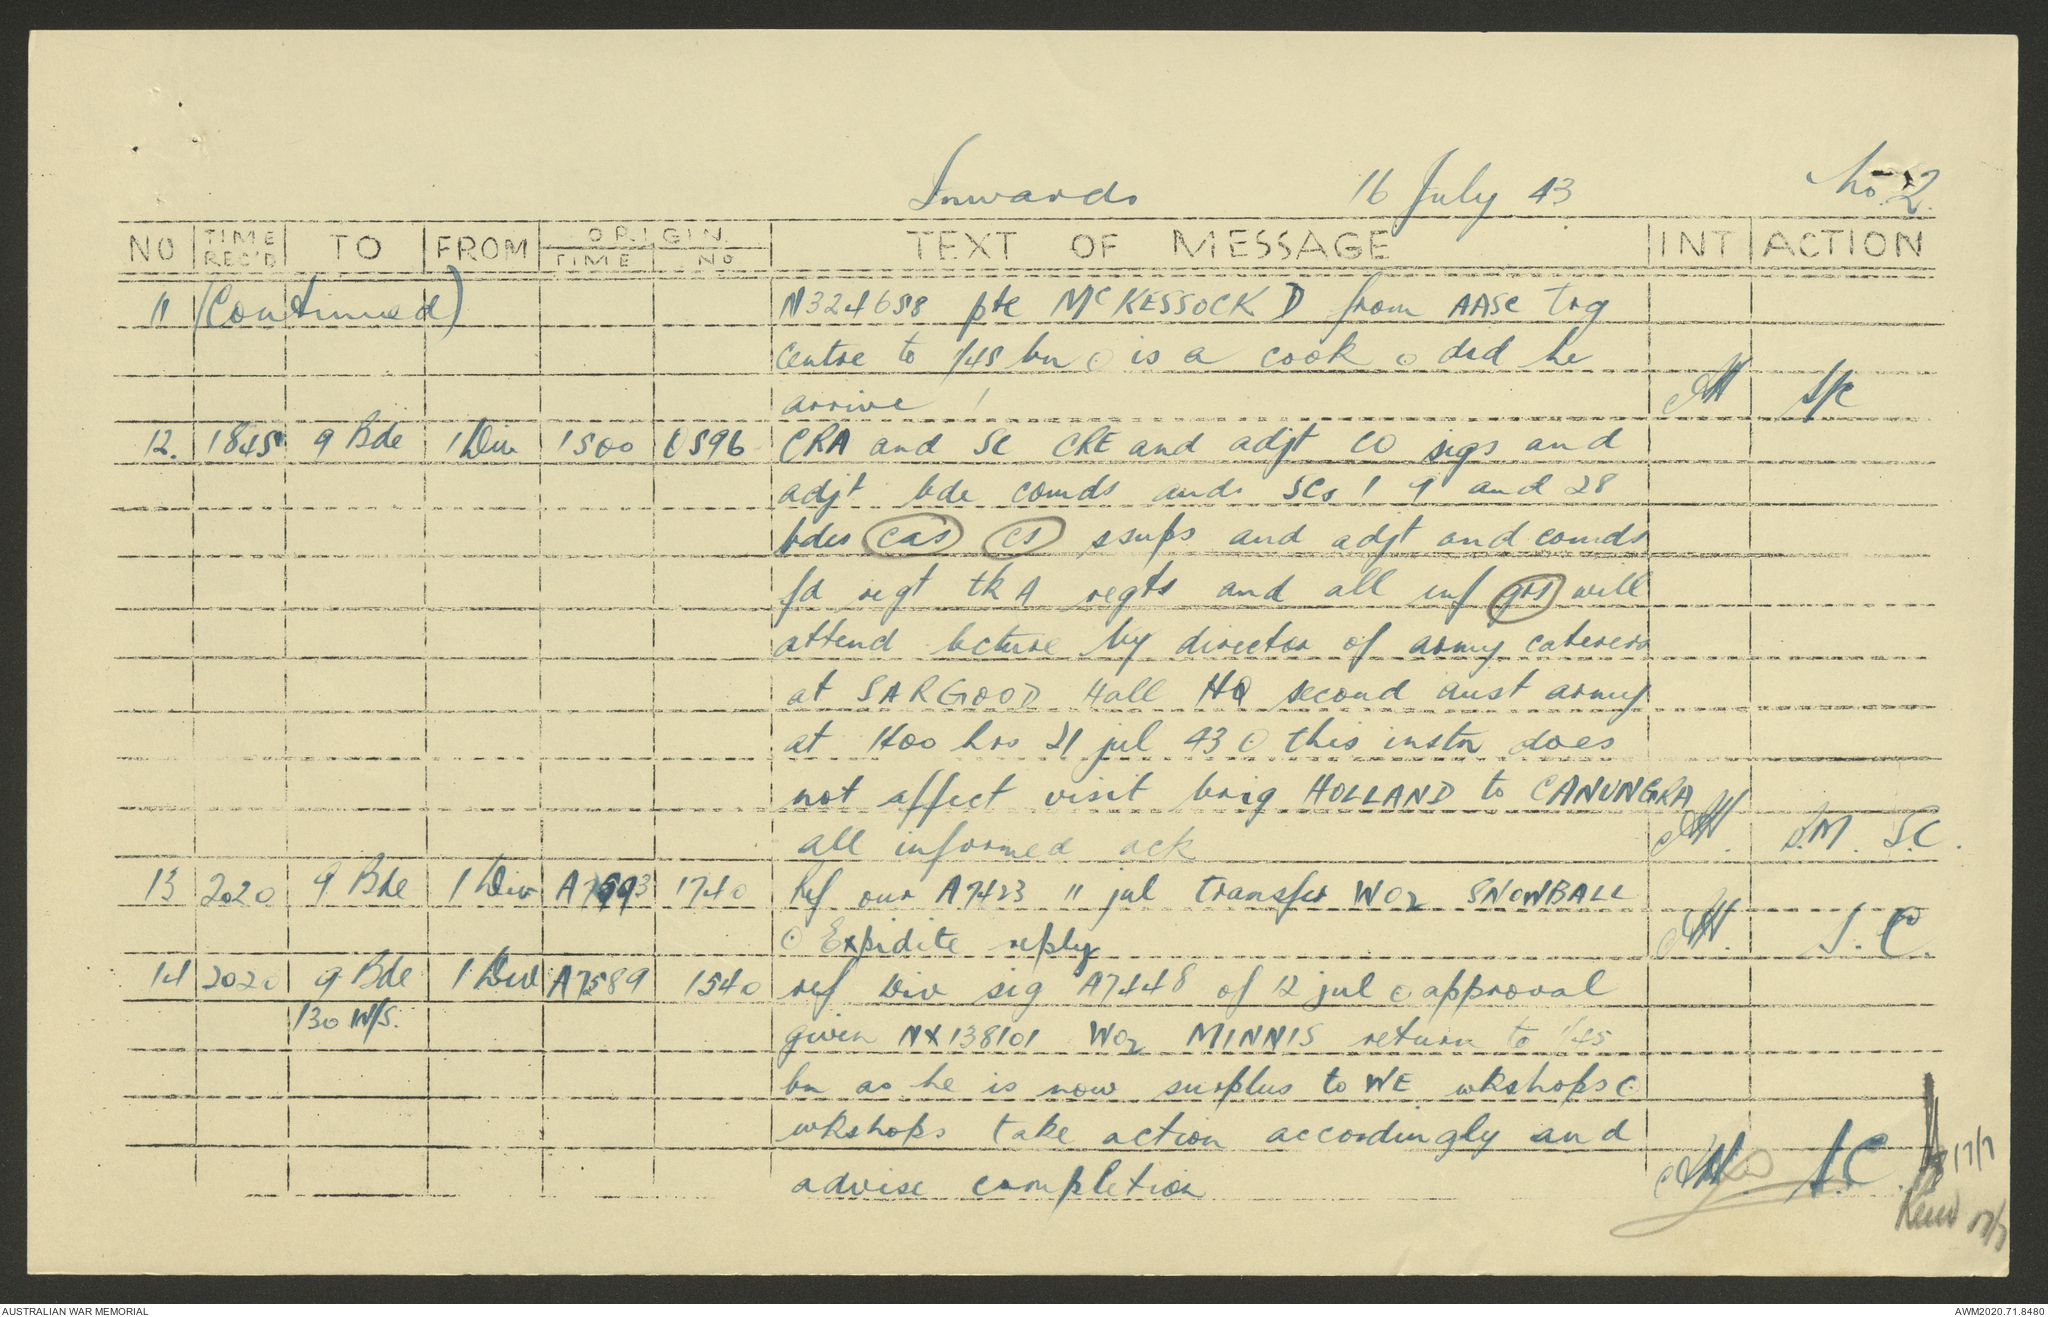 Inwards 16 July 43 No. 2.
NO TIME REC'D TO FROM ORIGIN TIME NO TEXT OF MESSAGE INT ACTION
11 (Continued) N324658 pte McKESSOCK D from AASC Trg
centre to 1/45 bn ⊙ is a cook ⊙ did he
arrive SC
12. 1845 9 Bde 1 Div 1500 G596 CRA and SC CRE and adjt CO sigs and
adjt bde comds and SCs 1 9 and 28
bdes cas cs ssups and adjt and comds
fd regt tk A regts and all inf will
attend lecture by director of army caterers
at SARGOOD Hall HQ second aust army
at 1400 hrs 21 jul 43 ⊙ this instn does
not affect visit brig HOLLAND to CANUNGRA
all informed ack B.M. S.C.
13 2020 9 Bde 1 Div 1740 Ref our A7423 11 jul transfer WO2 SNOWBALL
⊙ Expidite reply S.C.
14 2020 9 Bde 1 Div A7589 1540 ref Div sig A7448 of 12 jul ⊙ approval
130 W/S. given NX138101 WO2 MINNIS return to 1/45
bn as he is now surplus to WE wkshops ⊙
wkshops take action accordingly and
advise completion S.C. 17/7
17/7
AUSTRALIAN WAR MEMORIAL AWM2020.71.8480